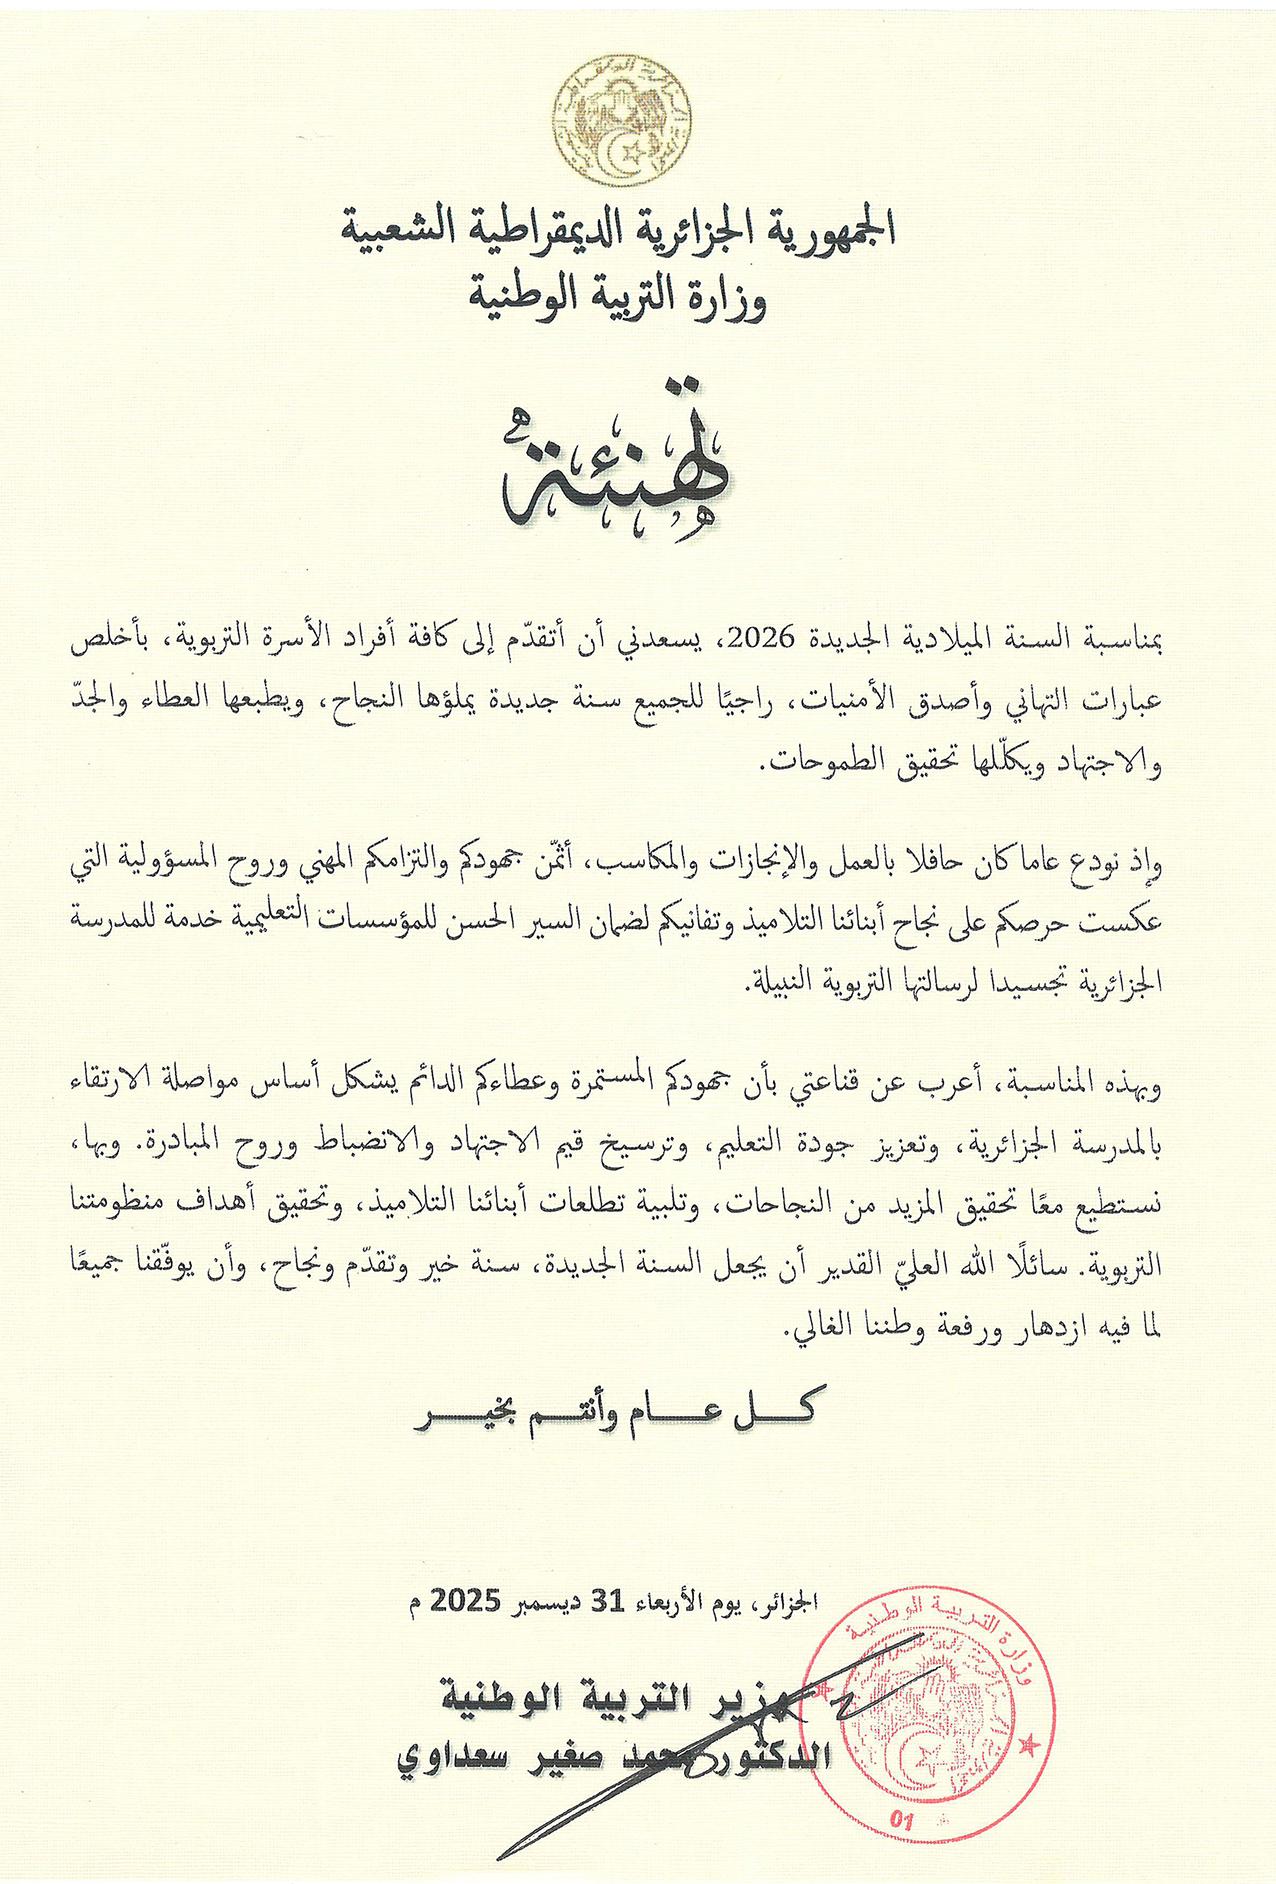 الجمهورية الجزائرية الديمقراطية الشعبية
وزارة التربية الوطنية
تهنئة
بمناسبة السنة الميلادية الجديدة 2026، يسعدني أن أتقدّم إلى كافة أفراد الأسرة التربوية، بأخلص
عبارات التهاني وأصدق الأمنيات، راجيًا للجميع سنة جديدة يملؤها النجاح، ويطبعها العطاء والجدّ
والاجتهاد ويكلّلها تحقيق الطموحات.
وإذ نودع عاما كان حافلا بالعمل والإنجازات والمكاسب، أثمّن جهودكم والتزامكم المهني وروح المسؤولية التي
عكست حرصكم على نجاح أبنائنا التلاميذ وتفانيكم لضمان السير الحسن للمؤسسات التعليمية خدمة للمدرسة
الجزائرية تجسيدا لرسالتها التربوية النبيلة.
وبهذه المناسبة، أعرب عن قناعتي بأن جهودكم المستمرة وعطاءكم الدائم يشكل أساس مواصلة الارتقاء
بالمدرسة الجزائرية، وتعزيز جودة التعليم، وترسيخ قيم الاجتهاد والانضباط وروح المبادرة. وبها،
نستطيع معًا تحقيق المزيد من النجاحات، وتلبية تطلعات أبنائنا التلاميذ، وتحقيق أهداف منظومتنا
التربوية. سائلًا الله العليّ القدير أن يجعل السنة الجديدة، سنة خير وتقدّم ونجاح، وأن يوفّقنا جميعًا
لما فيه ازدهار ورفعة وطننا الغالي.
كل عام وأنتم بخير
الجزائر، يوم الأربعاء 31 ديسمبر 2025 م
وزير التربية الوطنية
الدكتور محمد صغير سعداوي
وزارة التربية الوطنية
01